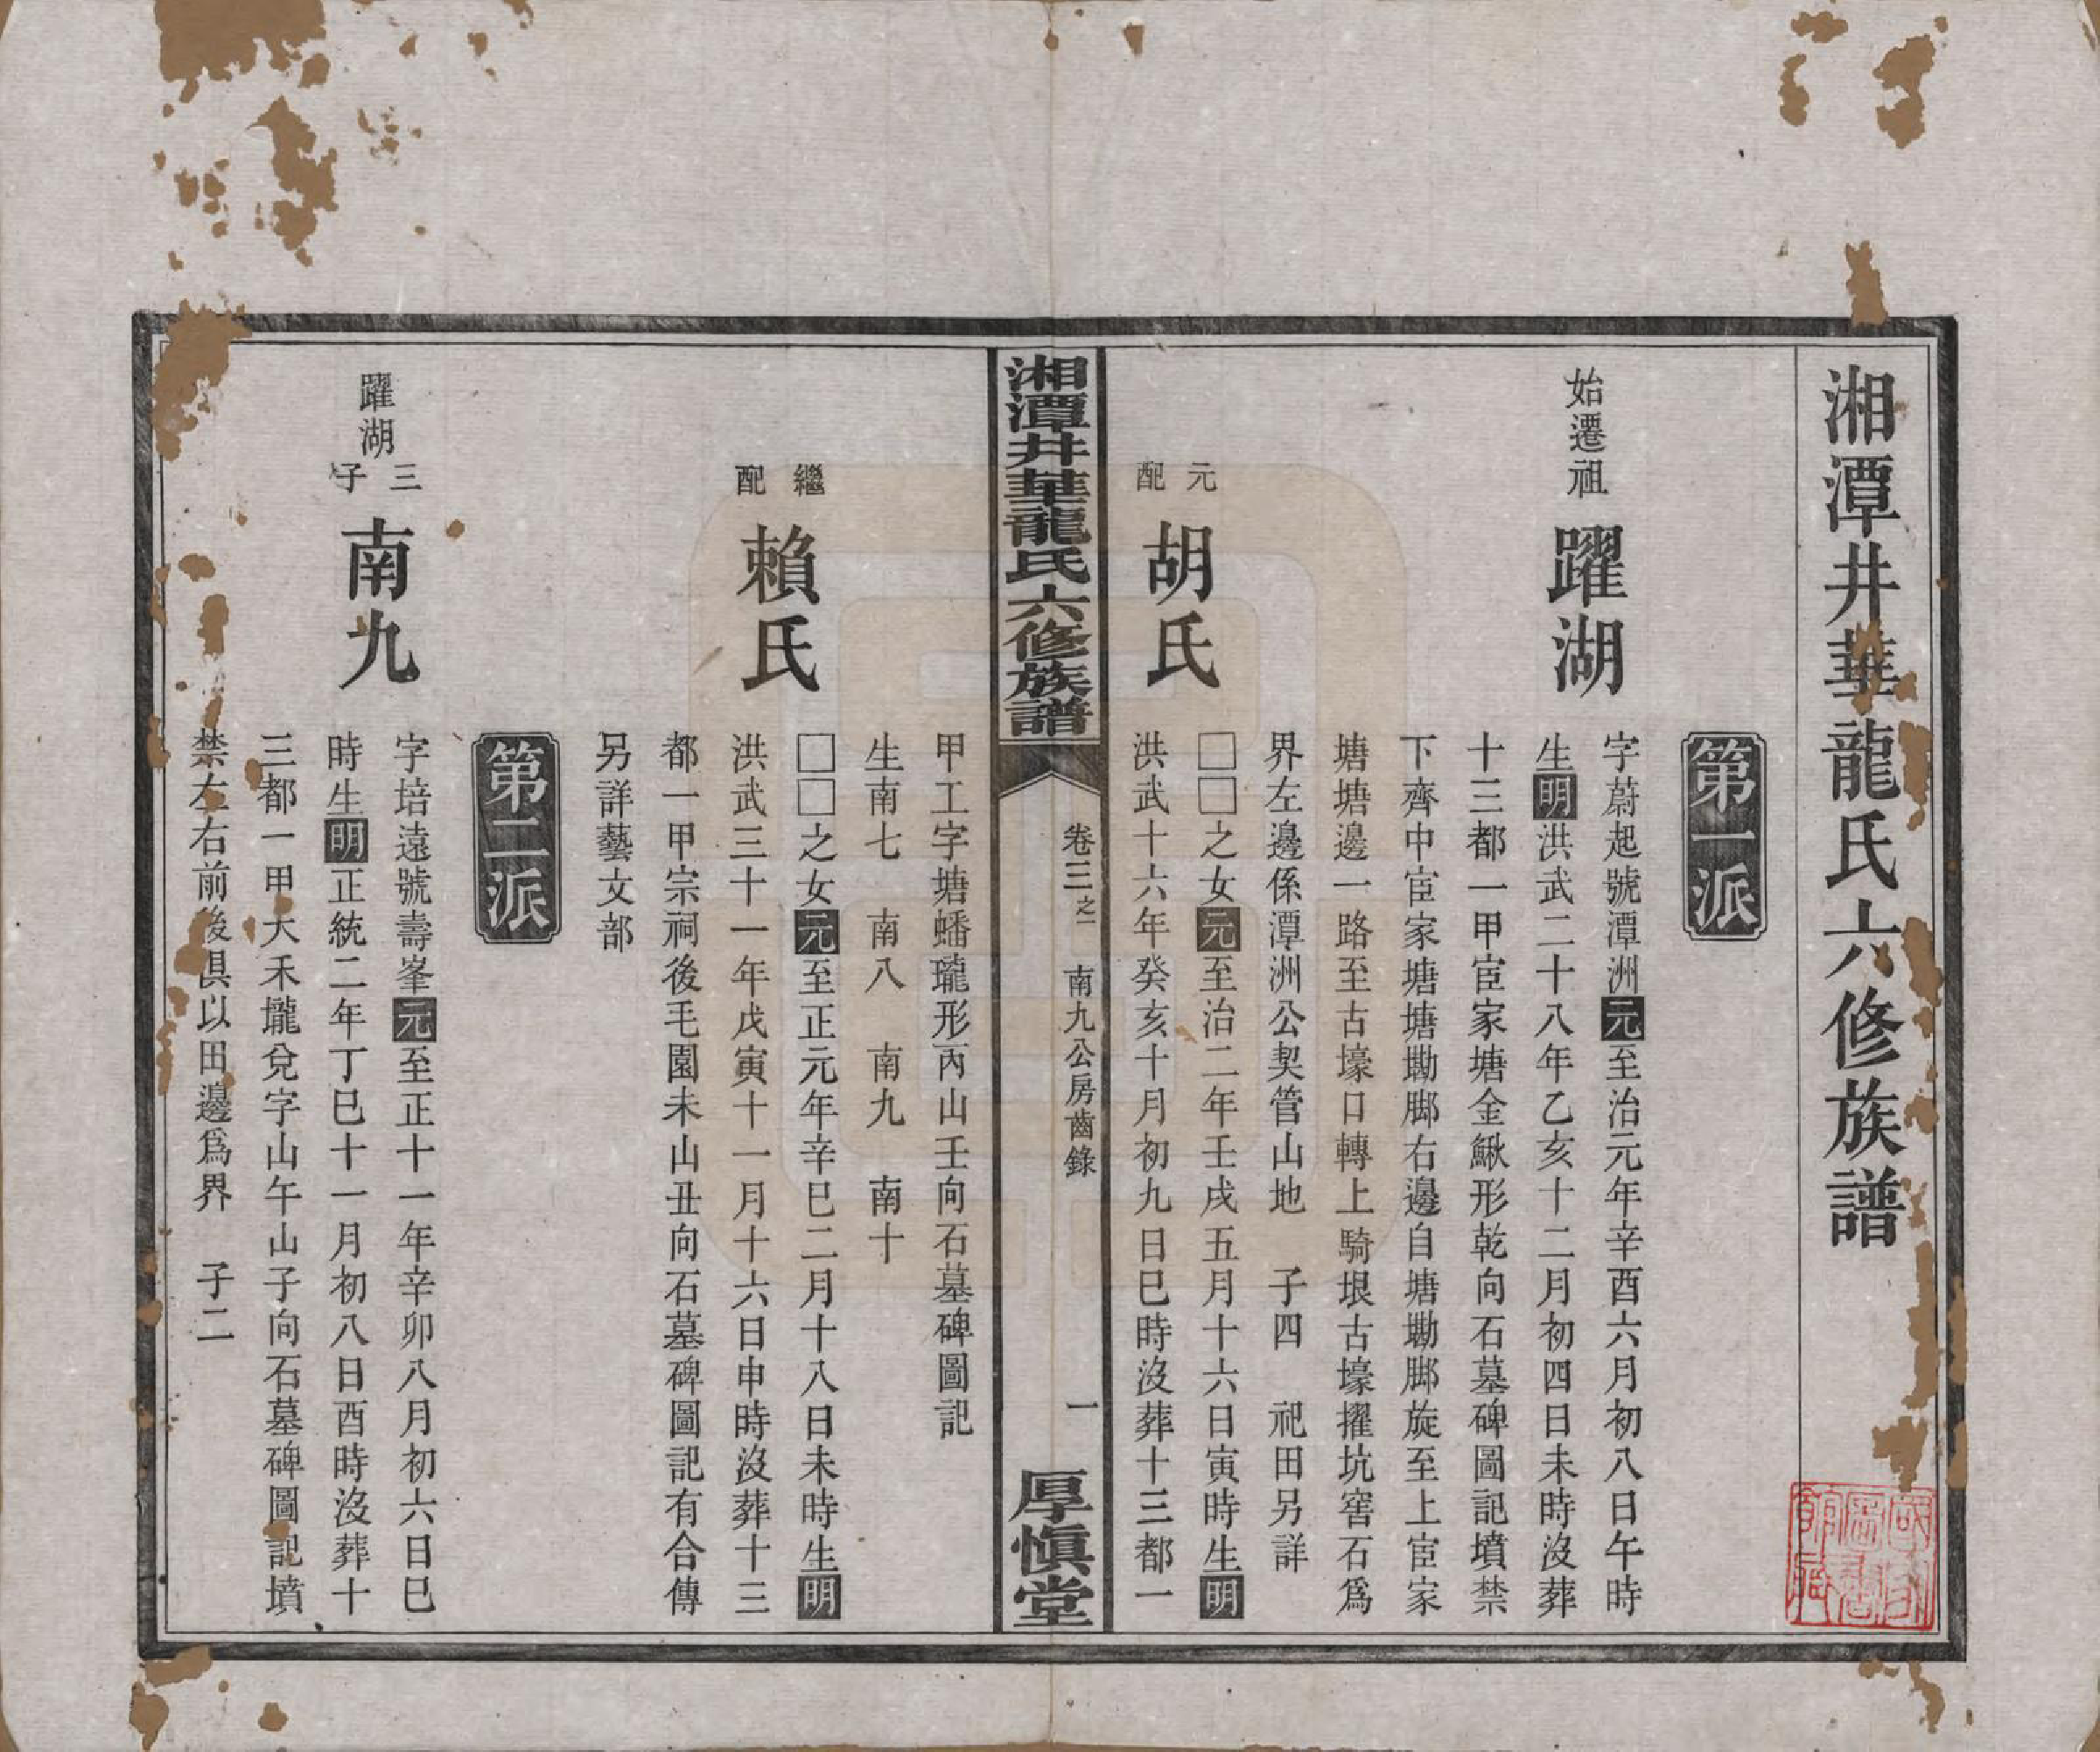 湘潭井華龍氏六修族譜
第一派
始遷祖
躍湖
字蔚起號潭洲元至治元年辛酉六月初八日午時
生明洪武二十八年乙亥十二月初四日未時沒葬
十三都一甲宦家塘金鰍形乾向石墓碑圖記墳禁
下齊中宦家塘塘勘脚右邊自塘勘脚旋至上宦家
塘塘邊一路至古壕口轉上騎垠古壕擢坑窖石爲
界左邊係潭洲公契管山地 子四 祀田另詳
元配
胡氏
□□之女元至治二年壬戌五月十六日寅時生明
洪武十六年癸亥十月初九日巳時沒葬十三都一
湘潭井華龍氏六修族譜
卷三之一 南九公房齒錄
一
厚慎堂
甲工字塘蟠瓏形丙山壬向石墓碑圖記
生南七 南八 南九 南十
繼配
賴氏
□□之女元至正元年辛巳二月十八日未時生明
洪武三十一年戊寅十一月十六日申時沒葬十三
都一甲宗祠後毛園未山丑向石墓碑圖記有合傳
另詳藝文部
第二派
躍湖三子
南九
字培遠號壽峯元至正十一年辛卯八月初六日巳
時生明正統二年丁巳十一月初八日酉時沒葬十
三都一甲大禾壠兌字山午山子向石墓碑圖記墳
禁左右前後俱以田邊爲界 子二